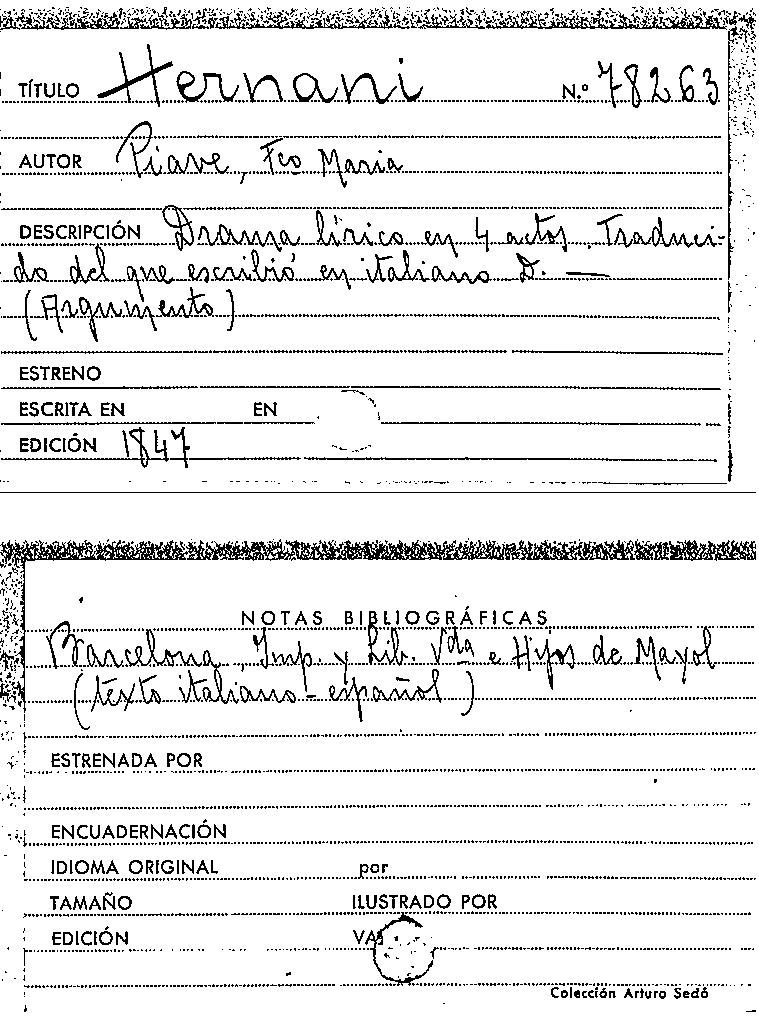 TÍTULO Hernani N.º 78263
AUTOR Piave, Fco Maria
DESCRIPCIÓN Drama lírico en 4 actos. Traduci-
do del que escribió en italiano D. —
(Argumento)
ESTRENO
ESCRITA EN EN
EDICIÓN 1847
NOTAS BIBLIOGRÁFICAS
Barcelona, Imp. y Lib. Vda e Hijos de Mayol
(texto italiano-español)
ESTRENADA POR
ENCUADERNACIÓN
IDIOMA ORIGINAL por
TAMAÑO ILUSTRADO POR
EDICIÓN
Colección Arturo Sedó